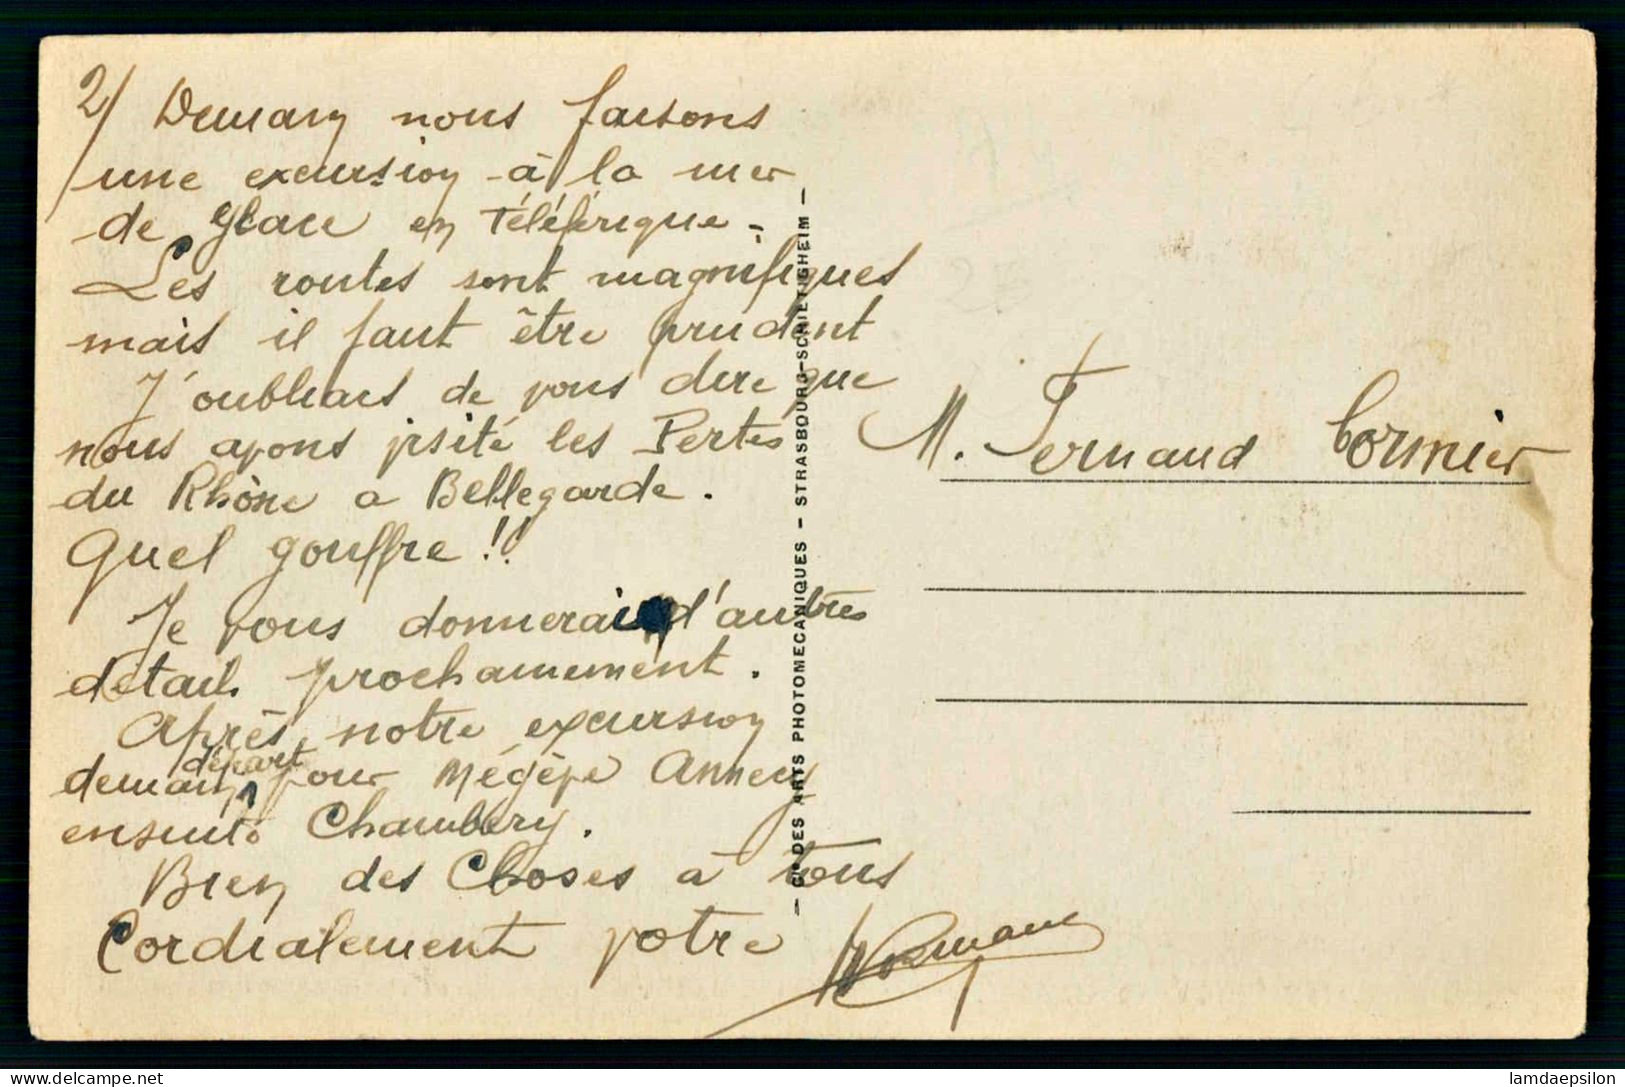 2/ Demain nous faisons
une excursion à la mer
de glace en téléférique -
Les routes sont magnifiques
mais il faut être prudent
J'oubliais de vous dire que
nous avons visité les Pertes
du Rhône a Bellegarde.
Quel gouffre !!
Je vous donnerai d'autres
détails prochainement.
Après notre excursion
demain départ pour Mégève Annecy
ensuite Chambéry.
Bien des Choses à tous
Cordialement votre
- Cie DES ARTS PHOTOMECANIQUES - STRASBOURG-SCHILTIGHEIM -
M. Fernand Cormier
delcampe.net
lamdaepsilon